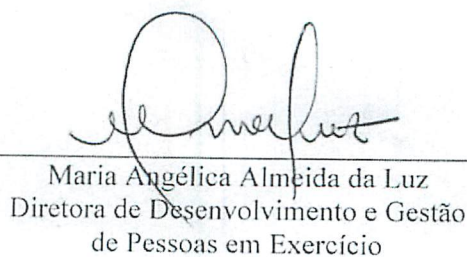 Maria Angélica Almeida da Luz
Diretora de Desenvolvimento e Gestão
de Pessoas em Exercício